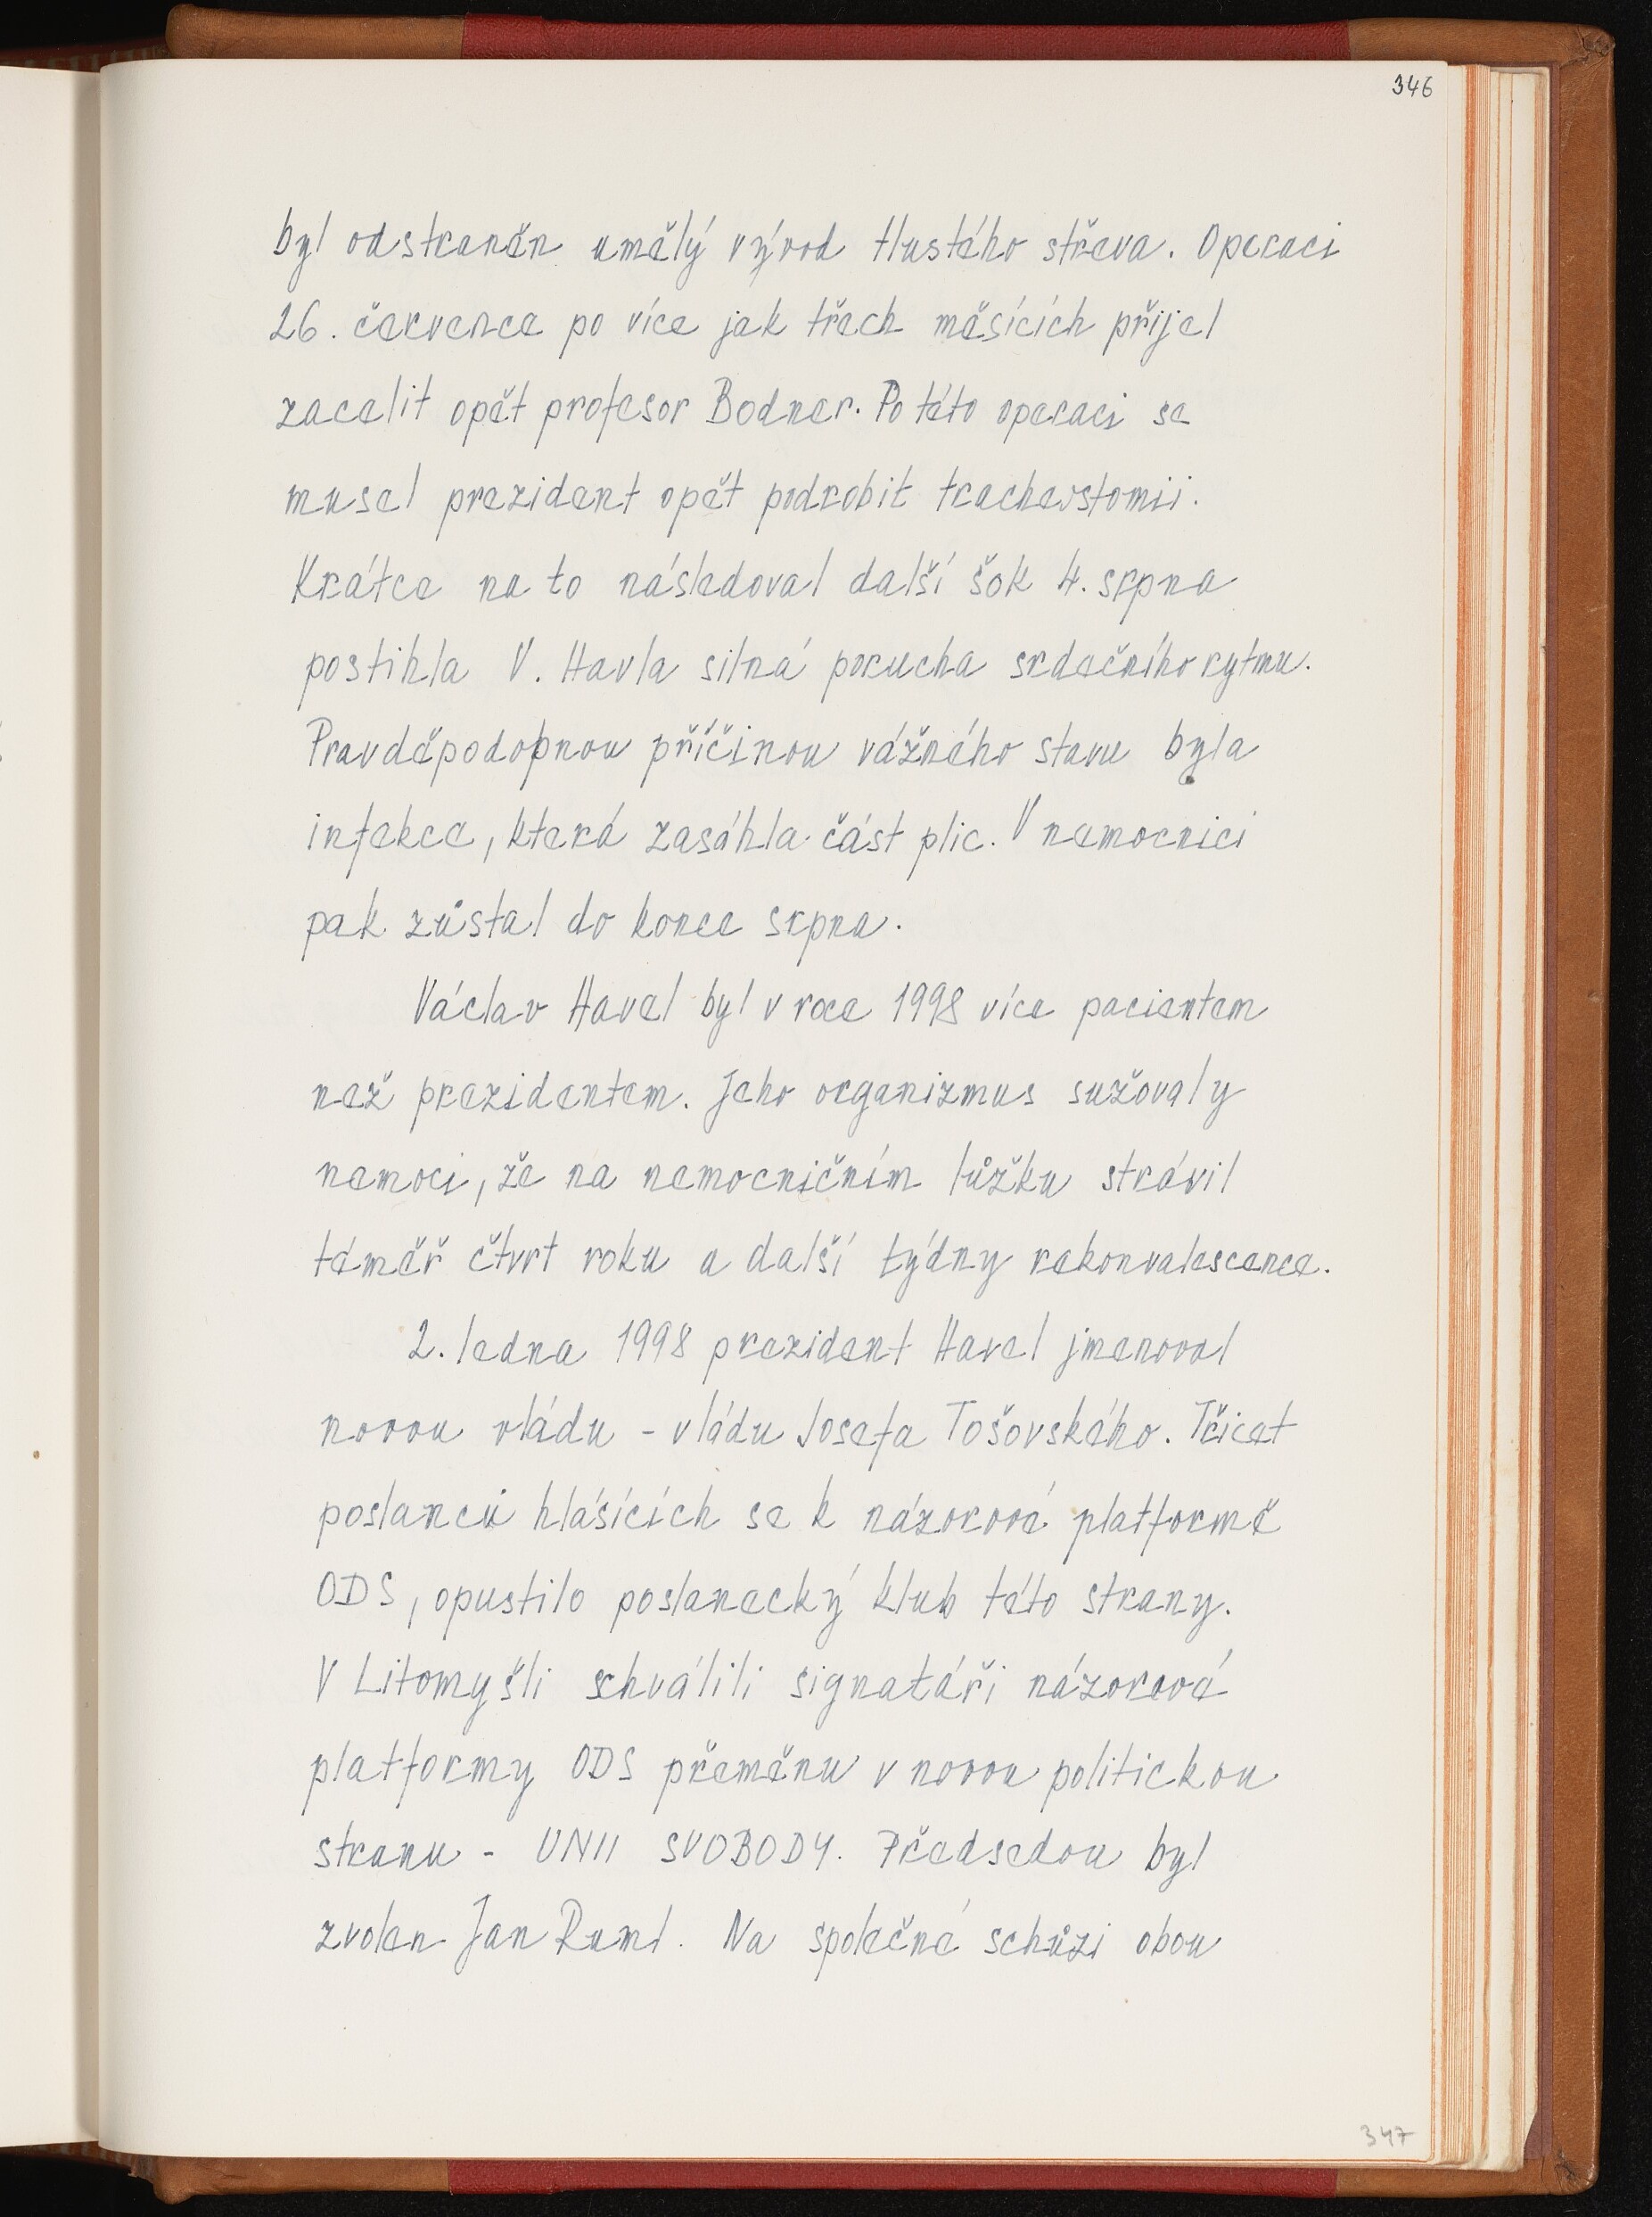 346
byl odstraněn umělý vývod tlustého střeva. Operaci
26. července po více jak třech měsících přijel
zacelit opět profesor Bodner. Po této operaci se
musel prezident opět podrobit tracheostomii.
Krátce na to následoval další šok 4. srpna
postihla V. Havla silná porucha srdečního rytmu.
Pravděpodopnou příčinou vážného stavu byla
infekce, která zasáhla část plic. V nemocnici
pak zůstal do konce srpna.
Václav Havel byl v roce 1998 více pacientem
než prezidentem. Jeho organizmus sužovaly
nemoci, že na nemocničním lůžku strávil
téměř čtvrt roku a další týdny rekonvalescence.
2. ledna 1998 prezident Havel jmenoval
novou vládu - vládu Josefa Tošovského. Třicet
poslanců hlásících se k názorové platformě
ODS, opustilo poslanecký klub této strany.
V Litomyšli schválili signatáři názorové
platformy ODS přeměnu v novou politickou
stranu - UNII SVOBODY. Předsedou byl
zvolen Jan Ruml. Na společné schůzi obou
347